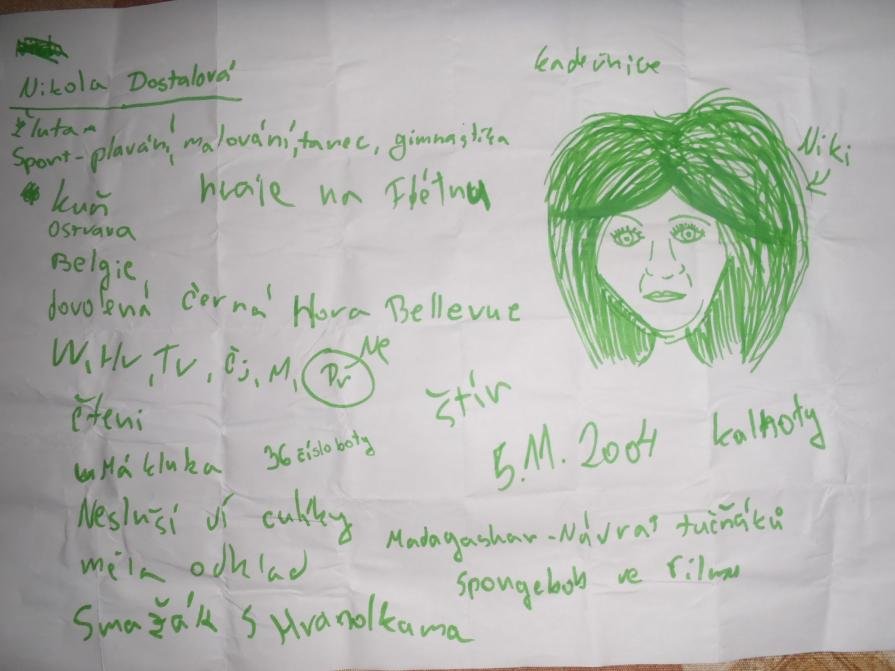 Nikola Dostalová
kadeřnice
žlutá
Sport-plavání, malování, tanec, gimnastika
Niki
kuň
hraje na Flétnu
Ostrava
Belgie
dovolená černá Hora Bellevue
W, Hv, Tv, Čj, M, Dr Ne
čtení
štír
Má kluka
36 číslo boty
5.11.2004
kalhoty
Nesluší jí culíky
Madagaskar-Návrat tučňáků
měla odklad
Spongebob ve filmu
Smažák s Hranolkama